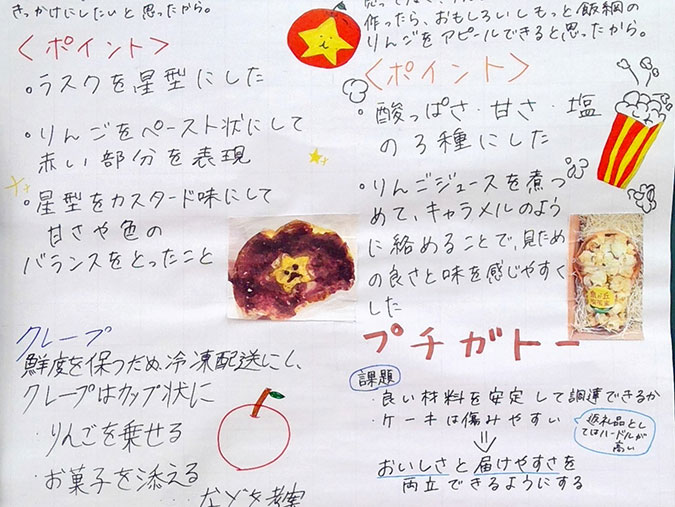 きっかけにしたいと思ったから。
<ポイント>
・ラスクを星型にした
・りんごをペースト状にして
赤い部分を表現
・星型をカスタード味にして
甘さや色の
バランスをとったこと
クレープ
鮮度を保つため、冷凍配送にし、
クレープはカップ状に
・りんごを乗せる
・お菓子を添える
などを考案
作ったら、おもしろいしもっと飯綱の
りんごをアピールできると思ったから。
<ポイント>
・酸っぱさ・甘さ・塩
の3種にした
・りんごジュースを煮つ
めて、キャラメルのよう
に絡めることで、見ため
の良さと味を感じやすく
した
プチガトー
課題
・良い材料を安定して調達できるか
・ケーキは傷みやすい
返礼品とし
てはハードルが
高い
おいしさと届けやすさを
両立できるようにする